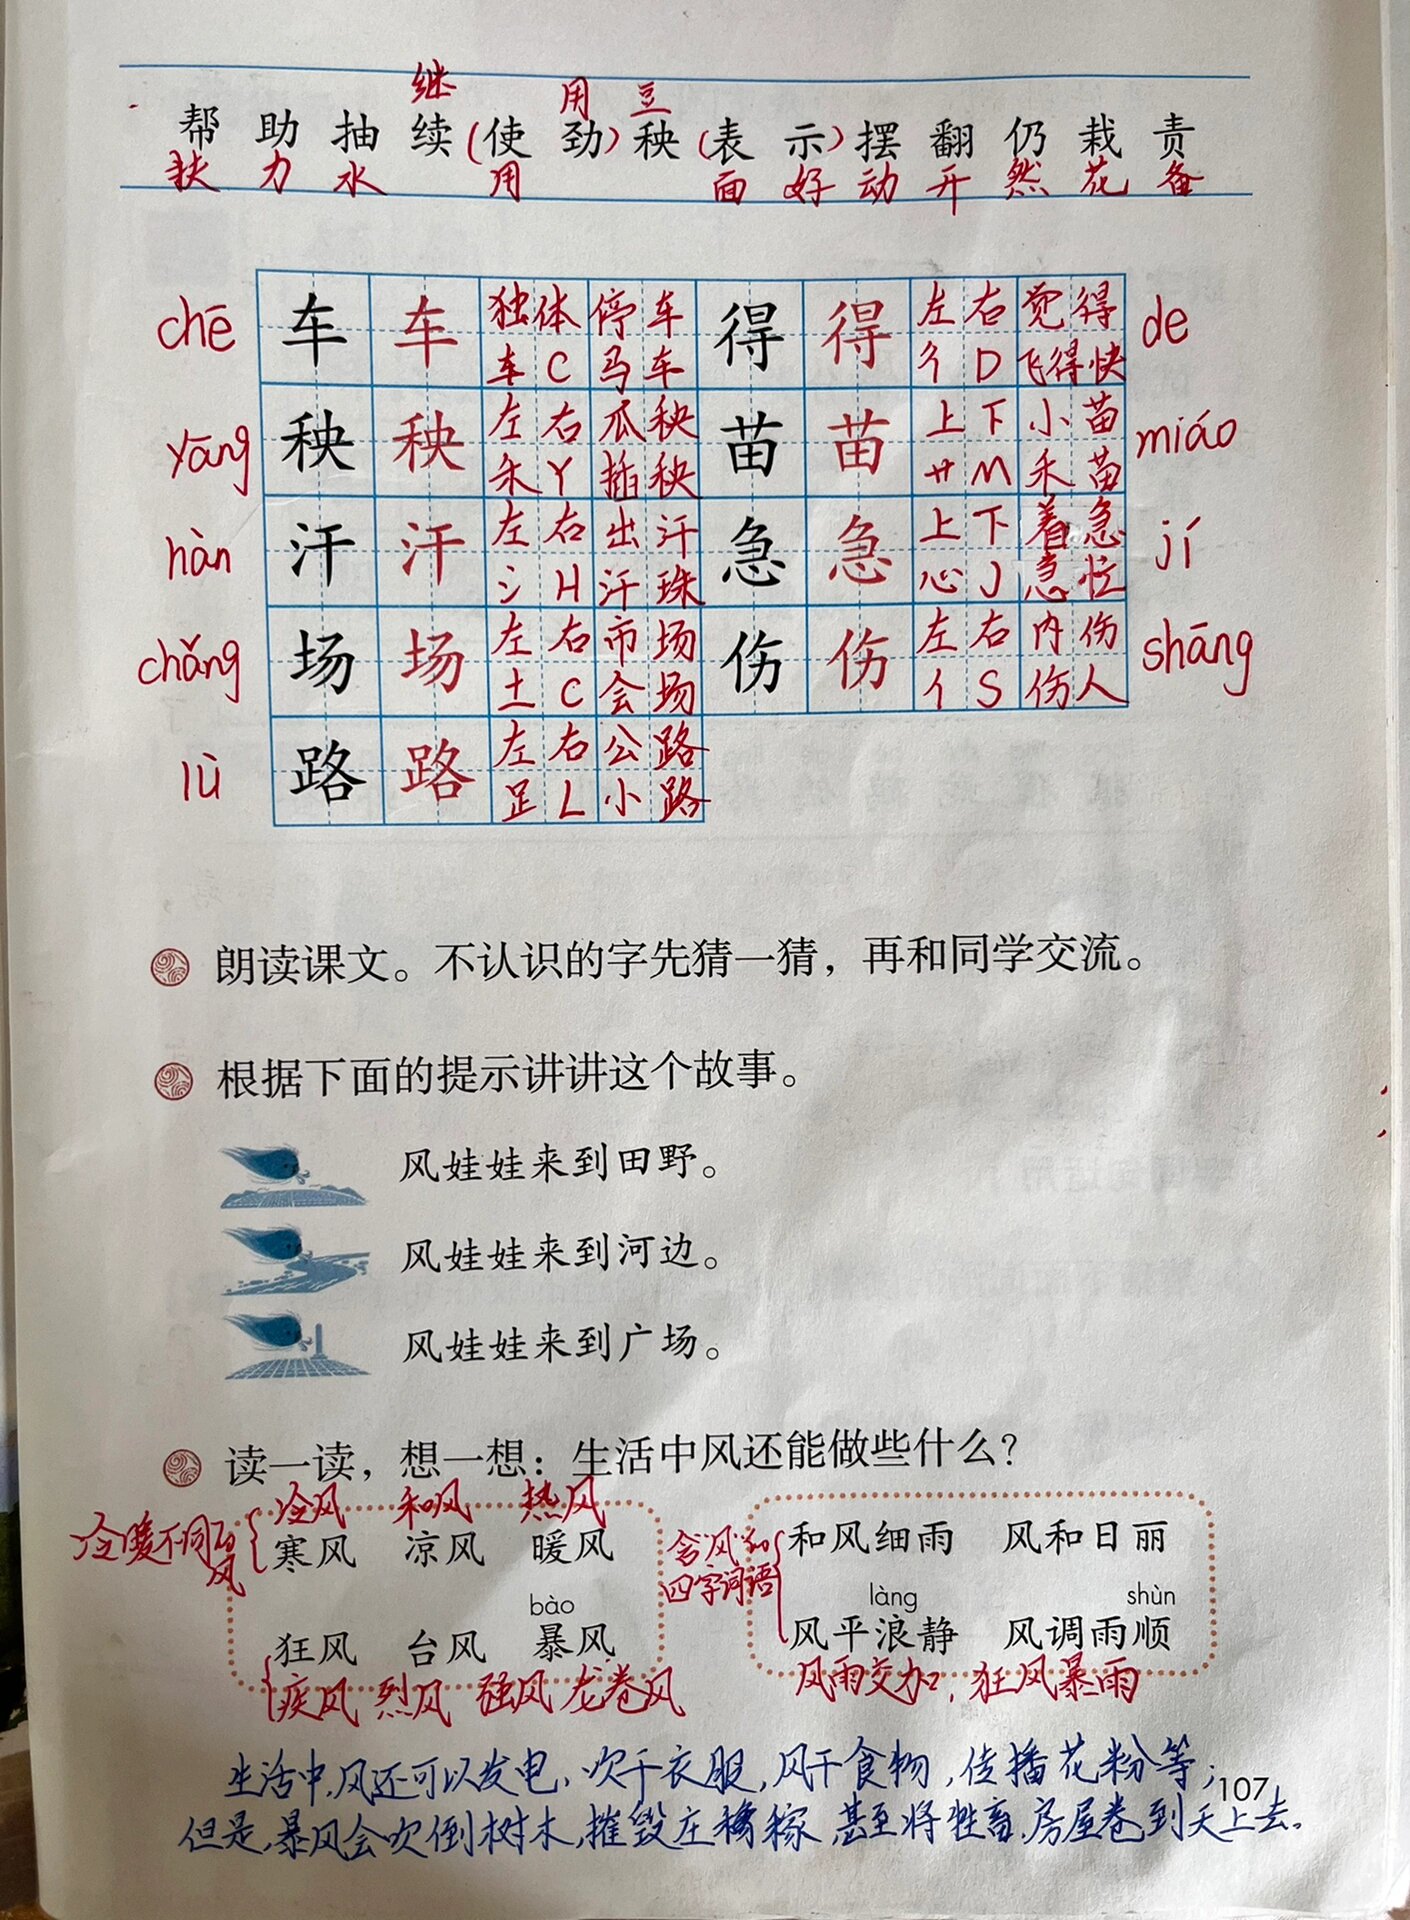 继 用 豆
帮 助 抽 续 (使 劲) 秧 (表 示) 摆 翻 仍 栽 责
扶 力 水 用 面 好 动 开 然 花 备
chē 车 车 独体 停车 得 得 左右 觉得 de
车 C 马车 彳 D 飞得快
yāng 秧 秧 左右 瓜秧 苗 苗 上下 小苗 miáo
禾 Y 插秧 艹 M 禾苗
hàn 汗 汗 左右 出汗 急 急 上下 着急 jí
氵 H 汗珠 心 J 急忙
chǎng 场 场 左右 市场 伤 伤 左右 内伤 shāng
土 C 会场 亻 S 伤人
lù 路 路 左右 公路
足 L 小路
朗读课文。不认识的字先猜一猜，再和同学交流。
根据下面的提示讲讲这个故事。
风娃娃来到田野。
风娃娃来到河边。
风娃娃来到广场。
读一读，想一想：生活中风还能做些什么？
冷风 和风 热风
冷暖不同的风
寒风 凉风 暖风
bào
狂风 台风 暴风
疾风 烈风 强风 龙卷风
含“风”的四字词语
和风细雨 风和日丽
làng shùn
风平浪静 风调雨顺
风雨交加、狂风暴雨
生活中，风还可以发电、吹干衣服，风干食物，传播花粉等；
107
但是，暴风会吹倒树木，摧毁庄稼，甚至将牲畜、房屋卷到天上去。